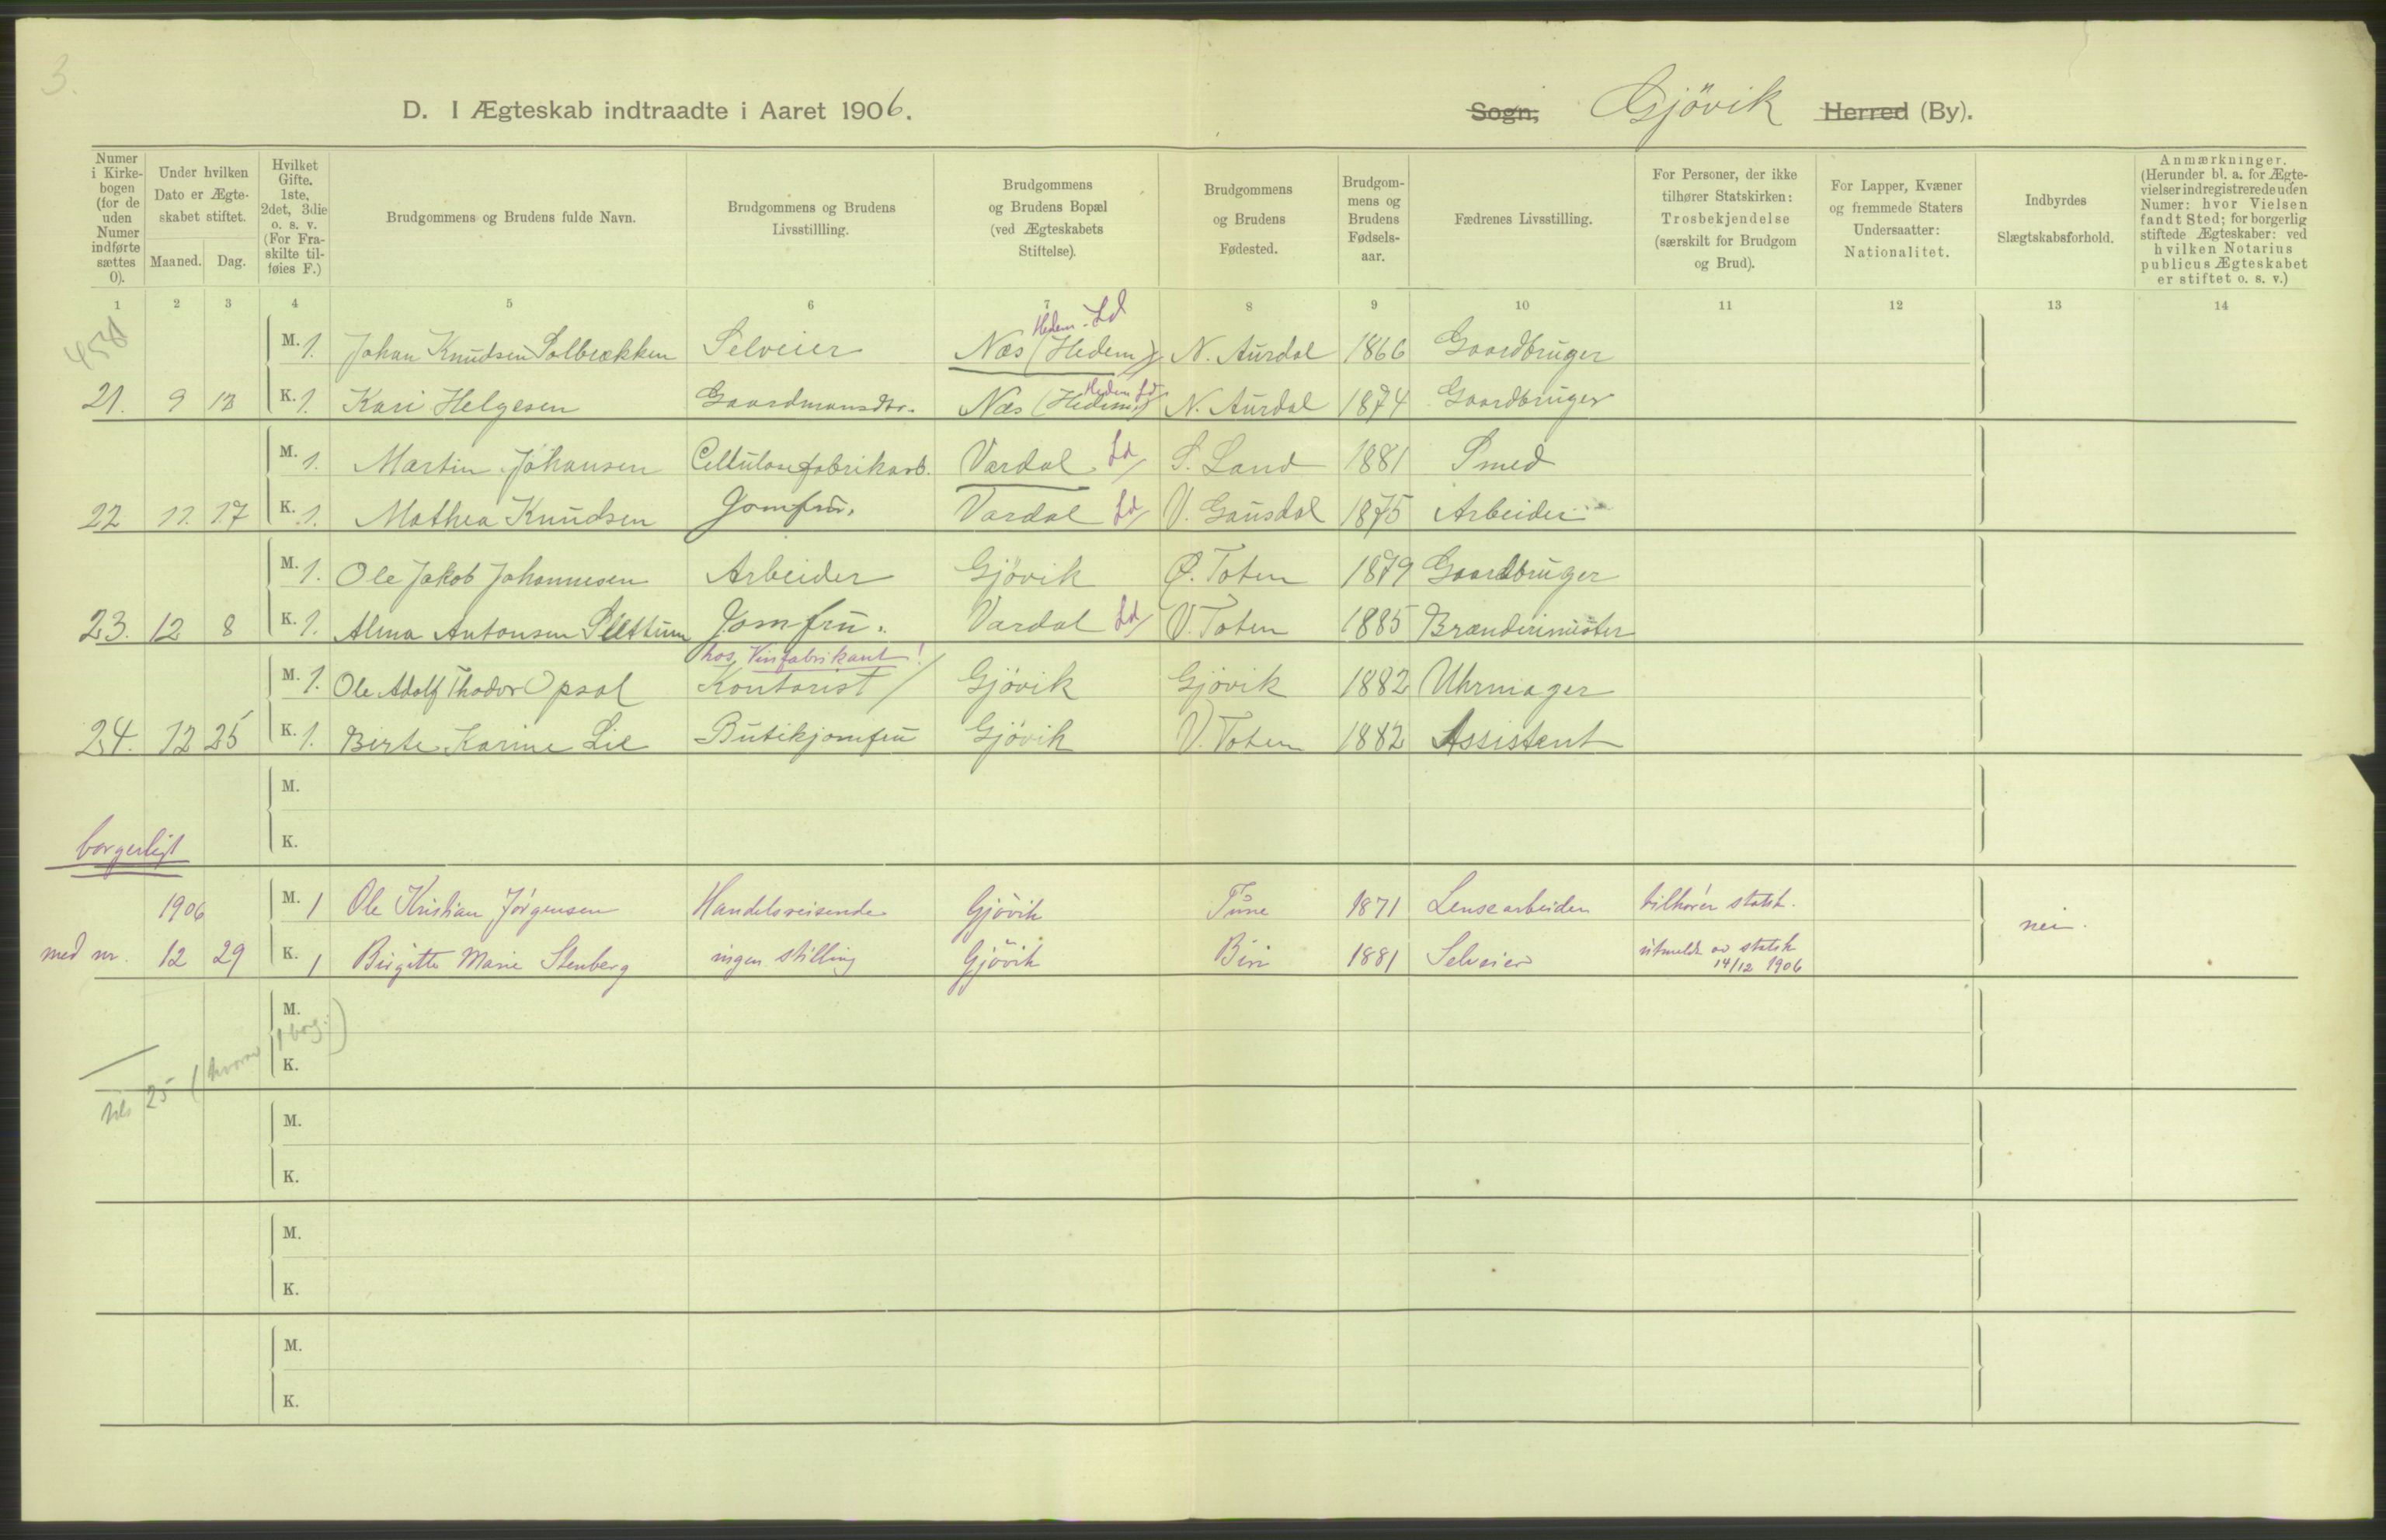 3.
D. I Ægteskab indtraadte i Aaret 1906.
Sogn, Gjövik Herred (By).
Numer i Kirkebogen (for de uden Numer indførte sættes 0).
Under hvilken Dato er Ægteskabet stiftet.
Maaned. Dag.
Hvilket Gifte. 1ste, 2det, 3die o. s. v. (For Fraskilte tilføies F.)
Brudgommens og Brudens fulde Navn.
Brudgommens og Brudens Livsstillling.
Brudgommens og Brudens Bopæl (ved Ægteskabets Stiftelse).
Brudgommens og Brudens Fødested.
Brudgommens og Brudens Fødselsaar.
Fædrenes Livsstilling.
For Personer, der ikke tilhører Statskirken: Trosbekjendelse (særskilt for Brudgom og Brud).
For Lapper, Kvæner og fremmede Staters Undersaatter: Nationalitet.
Indbyrdes Slægtskabsforhold.
Anmærkninger. (Herunder bl. a. for Ægtevielser indregistrerede uden Numer: hvor Vielsen fandt Sted; for borgerlig stiftede Ægteskaber: ved hvilken Notarius publicus Ægteskabet er stiftet o. s. v.)
1 2 3 4 5 6 7 8 9 10 11 12 13 14
Hedem. Ld
M. 1. Johan Knudsen Solbrækken Selveier Næs (Hedem.) N. Aurdal 1866 Gaardbruger
Hedem Ld
21. 9 13 K. 1. Kari Helgesen Gaardmandsdtr. Næs (Hedem.) N. Aurdal 1874 Gaardbruger
M. 1. Martin Johansen Cellulosefabrikarb. Vardal Ld S. Land 1881 Smed
22 11. 17 K. 1. Mathea Knudsen Jomfru. Vardal Ld V. Gausdal 1875 Arbeider
M. 1. Ole Jakob Johannesen Arbeider Gjövik Ø. Toten 1879 Gaardbruger
23. 12 8 K. 1. Alma Antonsen Jomfru. Vardal Ld V. Toten 1885 Brænderimester
hos Vinfabrikant!
M. 1. Ole Adolf Thodor Opsal Kontorist Gjövik Gjövik 1882 Uhrmager
24. 12 25 K. 1. Birte Karine Lie Butikjomfru Gjövik V. Toten 1882 Assistent
M.
K.
borgerligt
1906 M. 1 Ole Kristian Jörgensen Handelsreisende Gjövik Tune 1871 Lensearbeider tilhører statsk.
nei.
med nr. 12 29 K. 1 Birgitte Marie Stenberg ingen stilling Gjövik Biri 1881 Selveier utmeldt av statsk 14/12 1906
M.
K.
25 (hvorav 1 borg.)
M.
K.
M.
K.
M.
K.